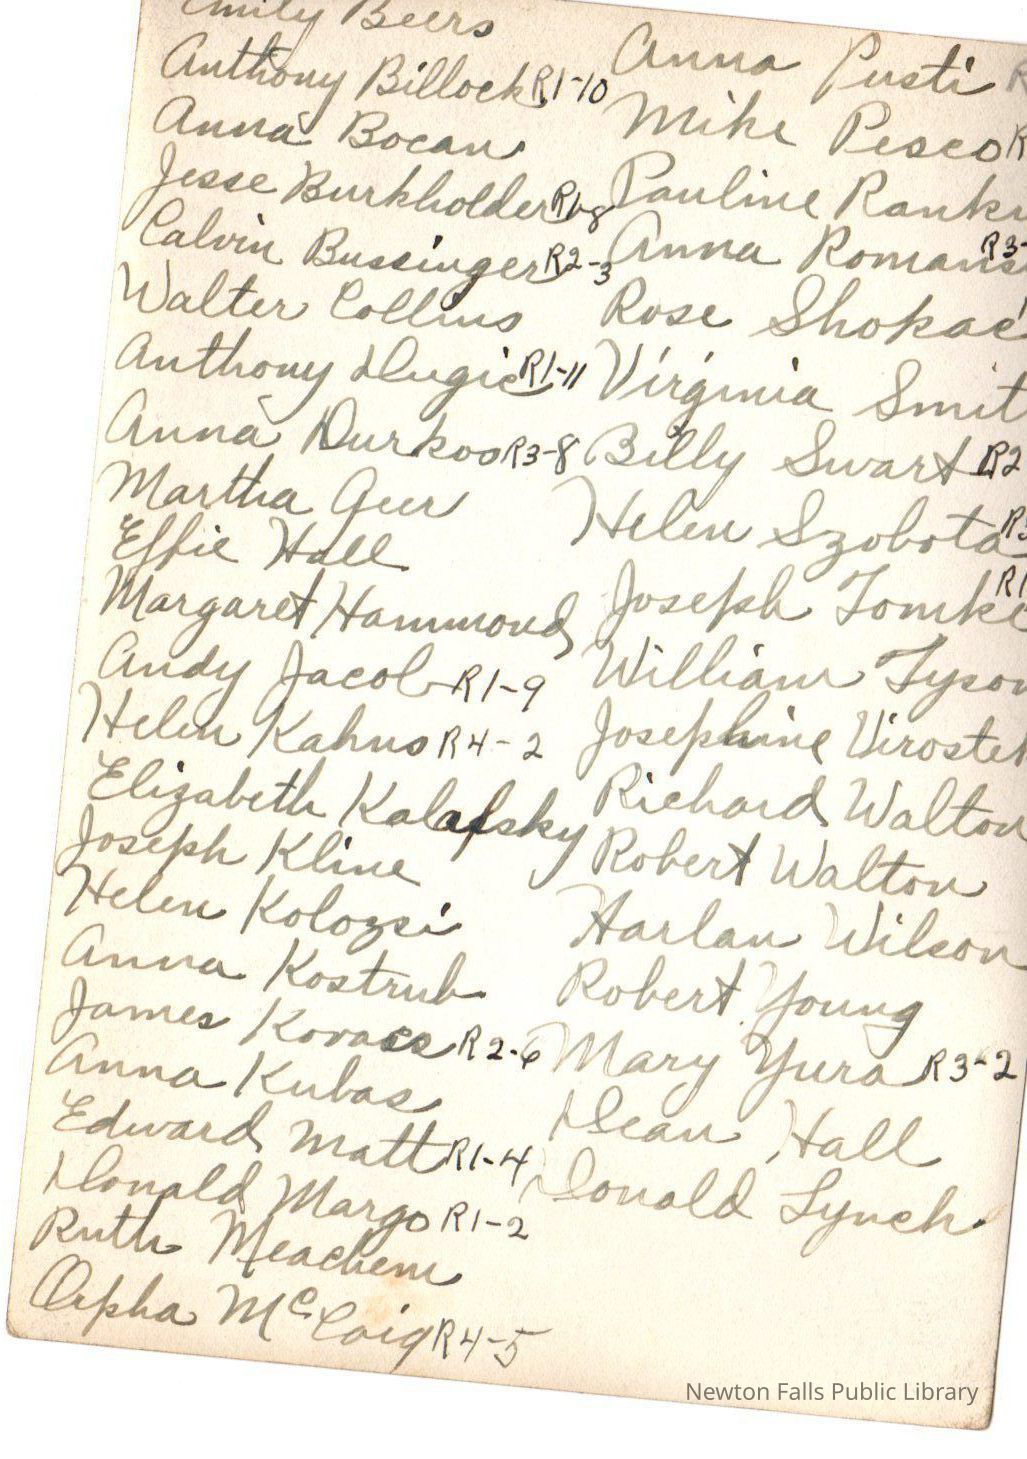 Emily Beers
Anthony Billock R1-10
Anna Bocan
Jesse Burkholder R1-8
Calvin Bussinger R2-3
Walter Collins
Anthony Dugic R1-11
Anna Durkos R3-8
Martha Geer
Effie Hall
Margaret Hammond
Andy Jacob R1-9
Helen Kahus R4-2
Elizabeth Kalafsky
Joseph Kline
Helen Kolozsi
Anna Kostrub
James Kovacs R2-6
Anna Kubas
Edward Matt R1-4
Donald Margo R1-2
Ruth Meachem
Orpha McCaig R4-5
Anna Pusti R
Mike Pesco R
Pauline Rank
Anna Romans R3-
Rose Shokac
Virginia Smit
Billy Swart R2
Helen Szobota R3
Joseph Tomke R1
William Tyson
Josephine Virostek
Richard Walton
Robert Walton
Harlan Wilson
Robert Young
Mary Yura R3-2
Dean Hall
Donald Lynch
Newton Falls Public Library